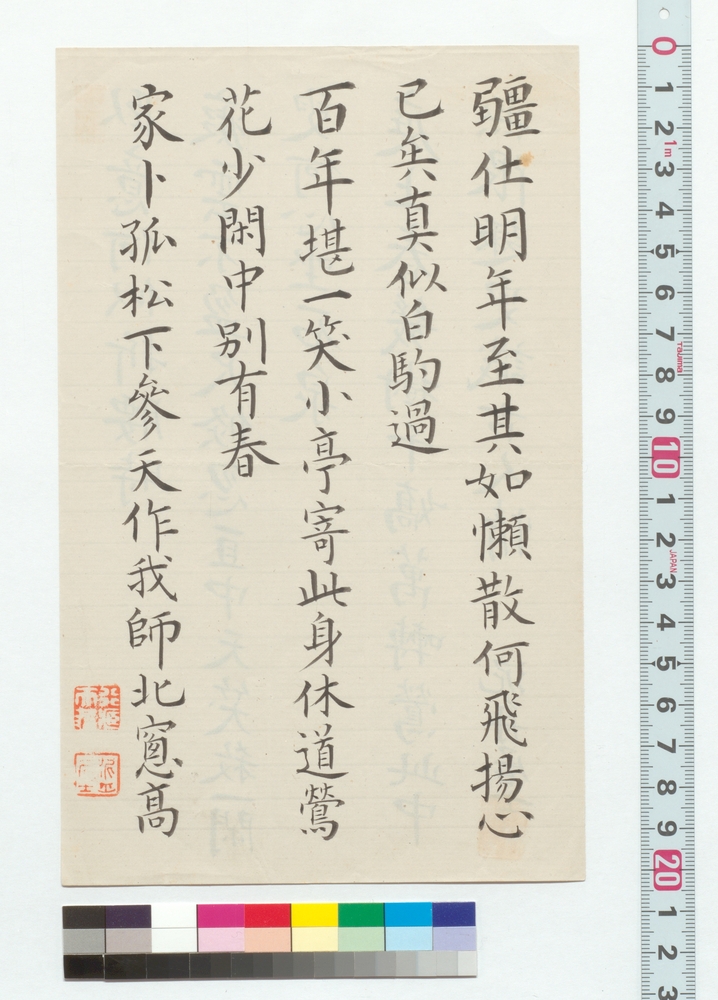 彊仕明年至其如懶散何飛揚心
已矣真似白駒過
百年堪一笑小亭寄此身休道鶯
花少閑中別有春
家卜孤松下參天作我師北窻高
0 1 2 3 4 5 6 7 8 9 10 1 2 3 4 5 6 7 8 9 20 1 2 3
1m
Tajima
JAPAN